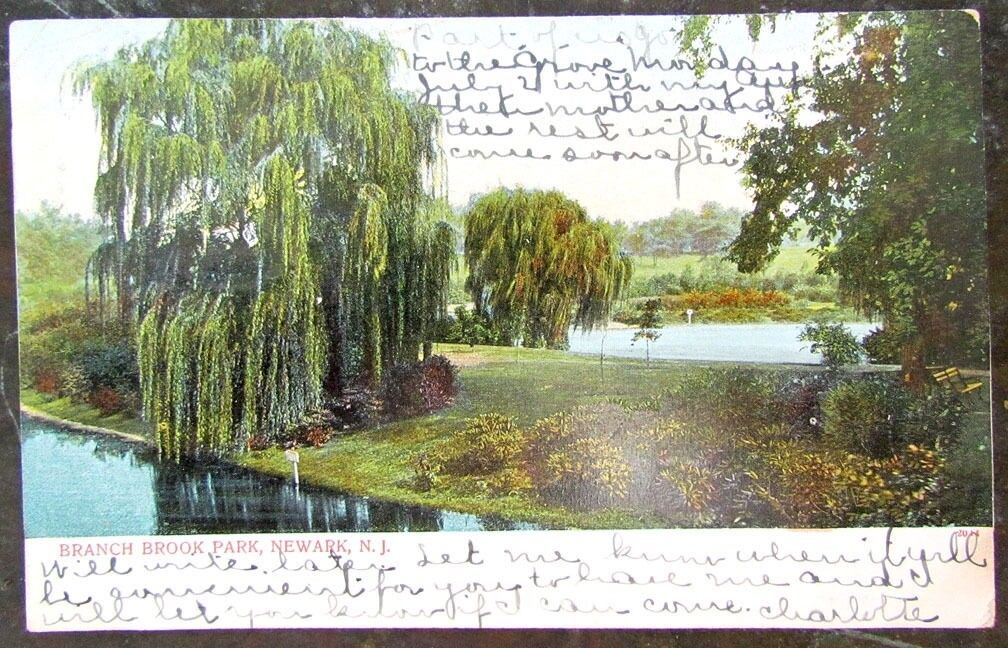 Part of us go
to the Grove Monday
July 2 with my
then mother and
the rest will
come soon after
2044
BRANCH BROOK PARK, NEWARK, N. J.
Will write later. Let me know when it will
be convenient for you to have me and I
will let you know if I can come. Charlotte